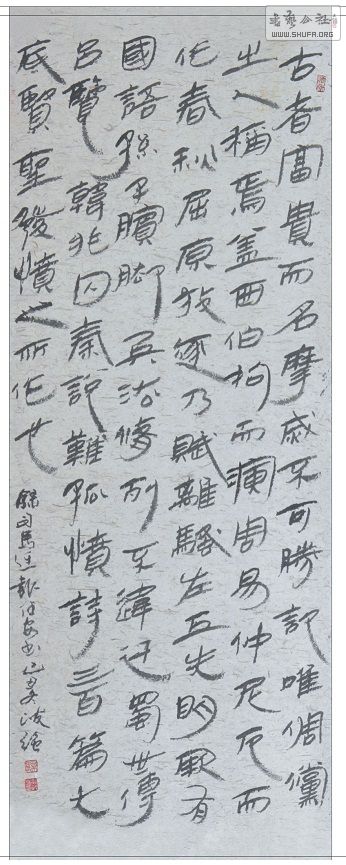 書藝公社
WWW.SHUFA.ORG
古者富貴而名摩烕不可勝記唯倜儻
之人稱焉盖西伯拘而演周易仲尼厄而
作春秋屈原放逐乃賦離騷左丘失明厥有
國語孫子臏脚兵法修列不違迁蜀世傳
呂覽韓非囚秦說難孤憤詩三百篇大
底賢聖發憤之所作也
錄司馬迁報任安书己亥波强